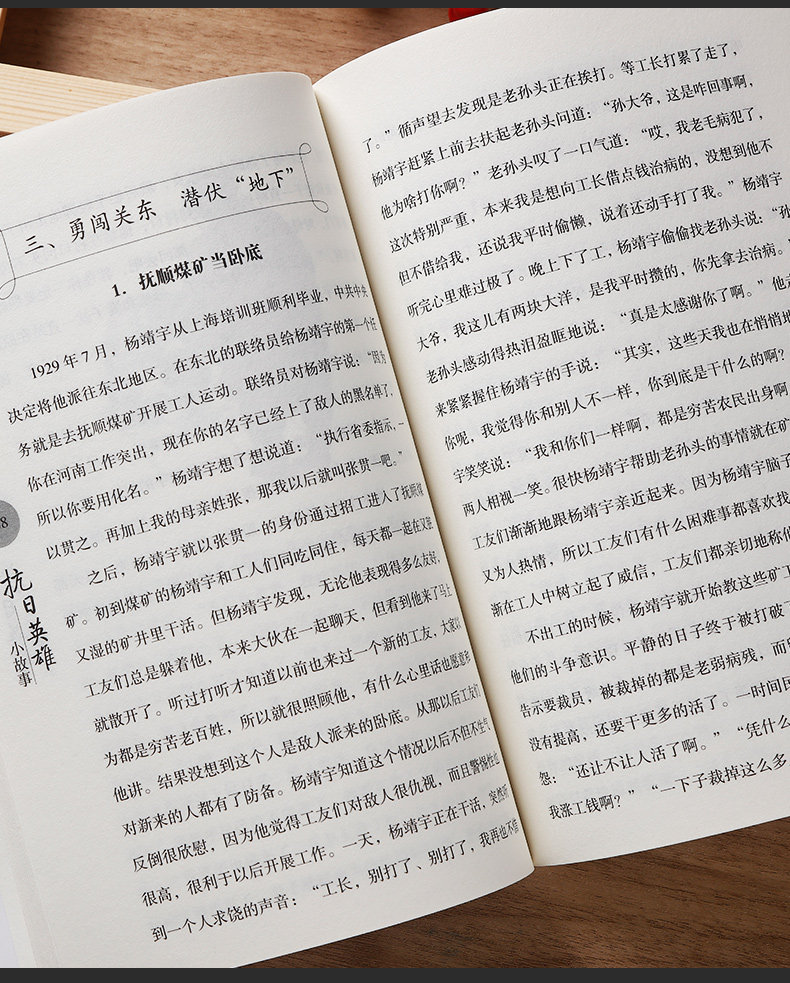 三、勇闯关东　潜伏“地下”
1. 抚顺煤矿当卧底
1929年7月，杨靖宇从上海培训班顺利毕业，中共中央
决定将他派往东北地区。在东北的联络员给杨靖宇的第一个任
务就是去抚顺煤矿开展工人运动。联络员对杨靖宇说：“因为
你在河南工作突出，现在你的名字已经上了敌人的黑名单了，
所以你要用化名。”杨靖宇想了想说道：“执行省委指示，一
以贯之。再加上我的母亲姓张，那我以后就叫张贯一吧。”
之后，杨靖宇就以张贯一的身份通过招工进入了抚顺煤
矿。初到煤矿的杨靖宇和工人们同吃同住，每天都一起在又脏
又湿的矿井里干活。但杨靖宇发现，无论他表现得多么友好，
工友们总是躲着他，本来大伙在一起聊天，但看到他来了马上
就散开了。听过打听才知道以前也来过一个新的工友，大家以
为都是穷苦老百姓，所以就很照顾他，有什么心里话也愿意和
他讲。结果没想到这个人是敌人派来的卧底。从那以后工友们
对新来的人都有了防备。杨靖宇知道这个情况以后不但不生气，
反倒很欣慰，因为他觉得工友们对敌人很仇视，而且警惕性也
很高，很利于以后开展工作。一天，杨靖宇正在干活，突然听
到一个人求饶的声音：“工长，别打了、别打了，我再也不借
8
抗日英雄
小故事
了。”循声望去发现是老孙头正在挨打。等工长打累了走了，
杨靖宇赶紧上前去扶起老孙头问道：“孙大爷，这是咋回事啊，
他为啥打你啊？”老孙头叹了一口气道：“哎，我老毛病犯了，
这次特别严重，本来我是想向工长借点钱治病的，没想到他不
但不借给我，还说我平时偷懒，说着还动手打了我。”杨靖宇
听完心里难过极了。晚上下了工，杨靖宇偷偷找老孙头说：“孙
大爷，我这儿有两块大洋，是我平时攒的，你先拿去治病。”
老孙头感动得热泪盈眶地说：“真是太感谢你了啊。”他
来紧紧握住杨靖宇的手说：“其实，这些天我也在悄悄地
你呢，我觉得你和别人不一样，你到底是干什么的啊？
宇笑笑说：“我和你们一样啊，都是穷苦农民出身啊
两人相视一笑。很快杨靖宇帮助老孙头的事情就在矿
工友们渐渐地跟杨靖宇亲近起来。因为杨靖宇脑子
又为人热情，所以工友们有什么困难事都喜欢找
渐在工人中树立起了威信，工友们都亲切地称他
不出工的时候，杨靖宇就开始教这些矿工
他们的斗争意识。平静的日子终于被打破了
告示要裁员，被裁掉的都是老弱病残，而
没有提高，还要干更多的活了。一时间民
怨：“还让不让人活了啊。”“凭什么
我涨工钱啊？”“一下子裁掉这么多